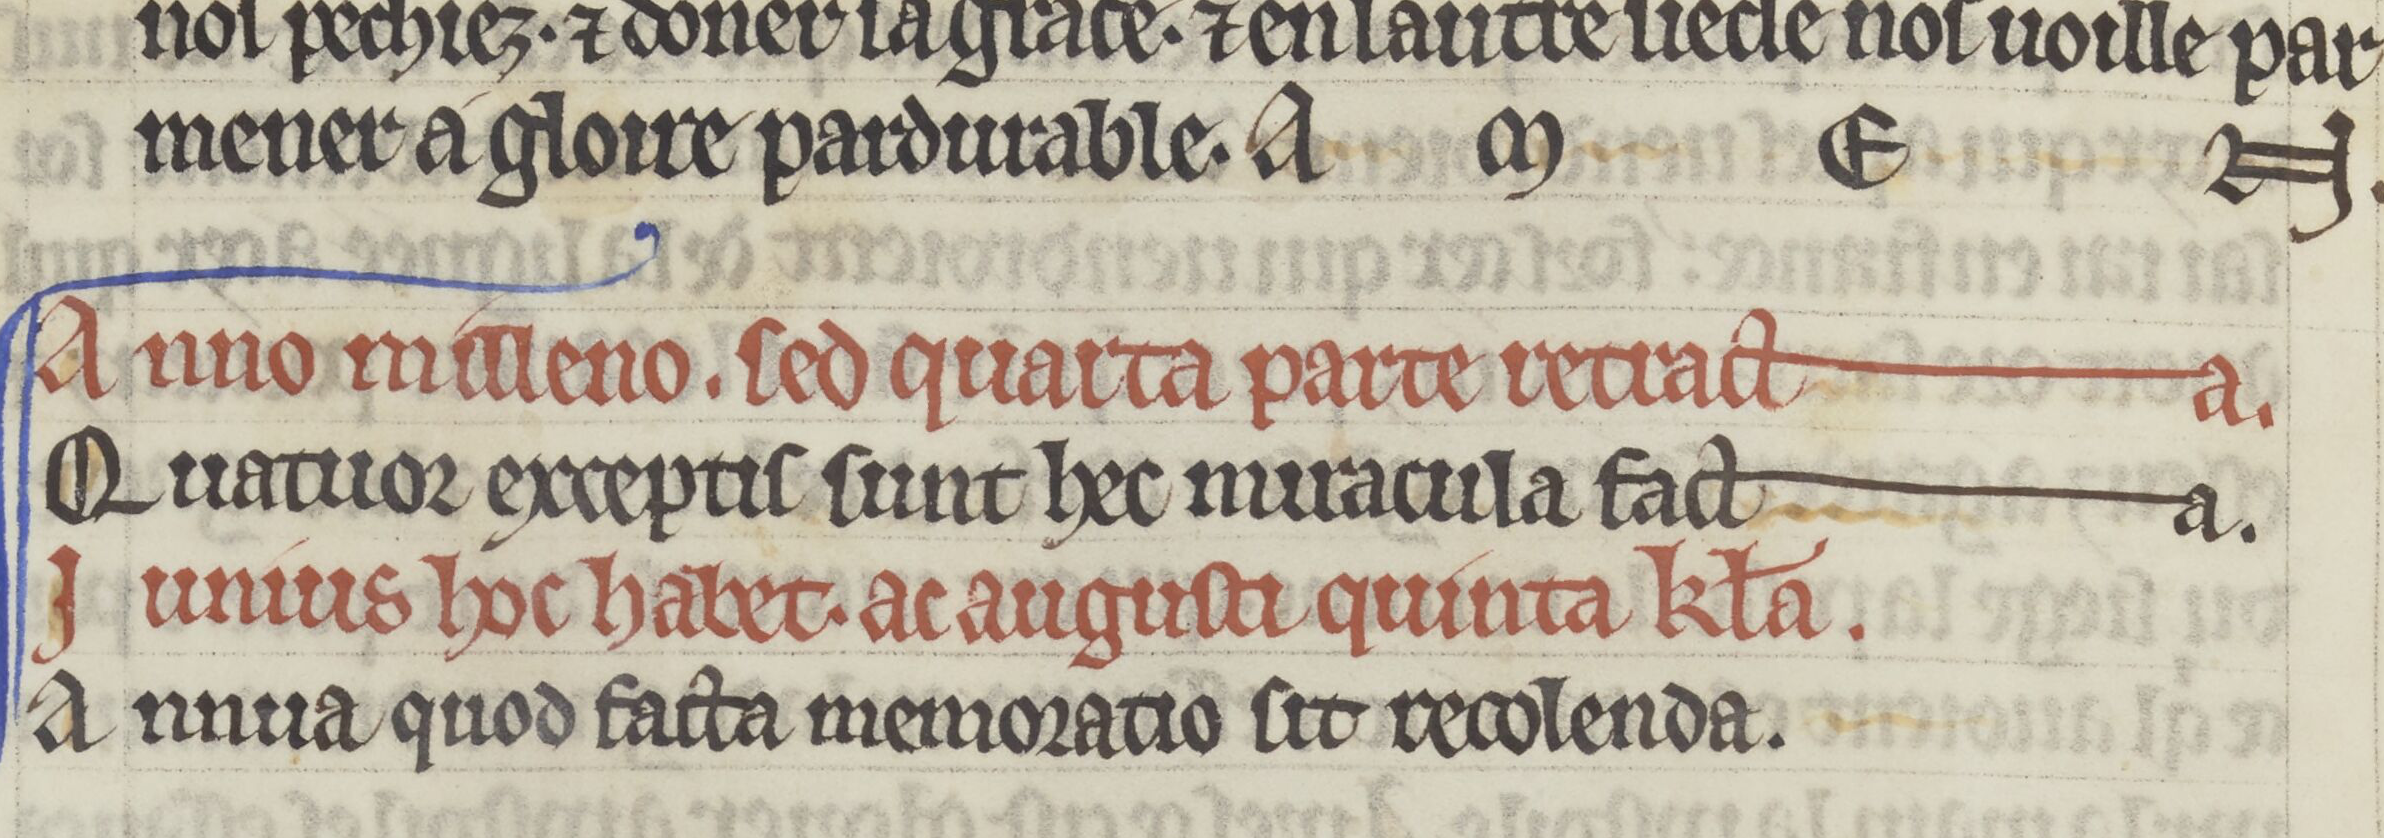 nos pechiez. ⁊ doner sa grace. ⁊ en lautre siecle nos uoille par
mener a gloire pardurable. A M E N.
Anno milleno. sed quarta parte retracta.
Quatuor exceptis sunt hec miracula facta.
Junius hoc habet. ac augusti quinta kl̄a.
Annua quod facta memoratio sit recolenda.